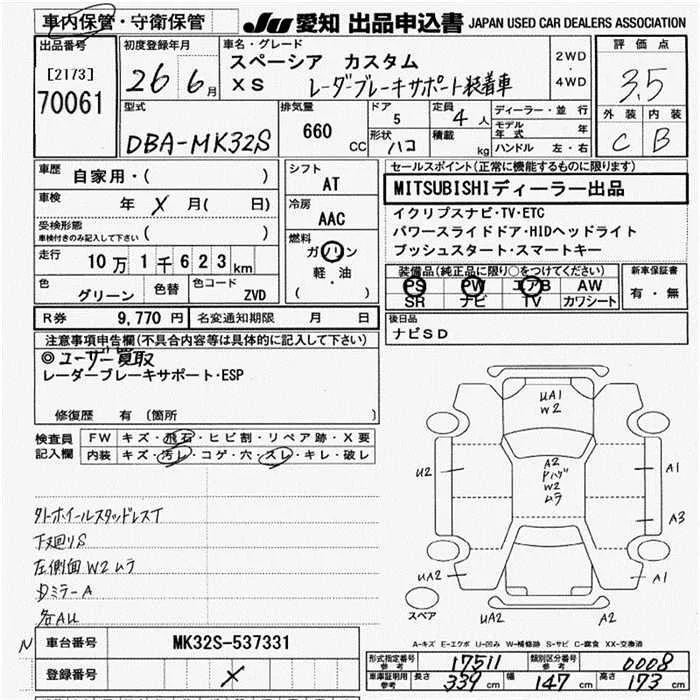 車内保管・守衛保管
JU 愛知 出品申込書 JAPAN USED CAR DEALERS ASSOCIATION
出品番号
[2173]
70061
初度登録年月
26 6月
車名・グレード
スペーシア カスタム
XS レーダーブレーキサポート装着車
2WD
・
4WD
評価点
3.5
外装 内装
C B
型式
DBA-MK32S
排気量
660 CC
ドア
5
形状
ハコ
定員
4人
積載
kg
ディーラー・並行
モデル年式 年
ハンドル 左・右
車歴
自家用・( )
車検
年 X 月( 日)
受検形態
車検付きのみ記入して下さい ( )
走行
10万1千623km
色
グリーン
色替
色コード
ZVD
シフト
AT
冷房
AAC
燃料
ガソリン
軽・油
( )
セールスポイント(正常に機能するものに限ります)
MITSUBISHIディーラー出品
イクリプスナビ・TV・ETC
パワースライドドア・HIDヘッドライト
プッシュスタート・スマートキー
装備品(純正品に限り○をつけてください)
PS PW エアB AW
SR ナビ TV カワシート
新車保証書
有・無
R券 9,770円 名変通知期限 月 日
後日品
ナビSD
注意事項申告欄(不具合内容等は具体的に記入して下さい)
◎ユーザー買取
レーダーブレーキサポート・ESP
修復歴 有 (箇所 )
検査員
記入欄
FW キズ・飛石・ヒビ割・リペア跡・X要
内装 キズ・汚レ・コゲ・穴・スレ・キレ・破レ
タトホイールスタッドレスT
下廻りS
左側面W2ムラ
Dミラー A
各AU
UA1
W2
A2
Pハゲ
W2
ムラ
U2
A1
A3
UA2
A1
スペア
UA2
A2
A-キズ E-エクボ U-凹み W-補修跡 S-サビ C-腐食 XX-交換済
N
車台番号 MK32S-537331
登録番号 X
形式指定番号
参考
17511
類別区分番号
参考
0008
車庫証明用
参考
長さ 339cm 幅 147cm 高さ 173cm